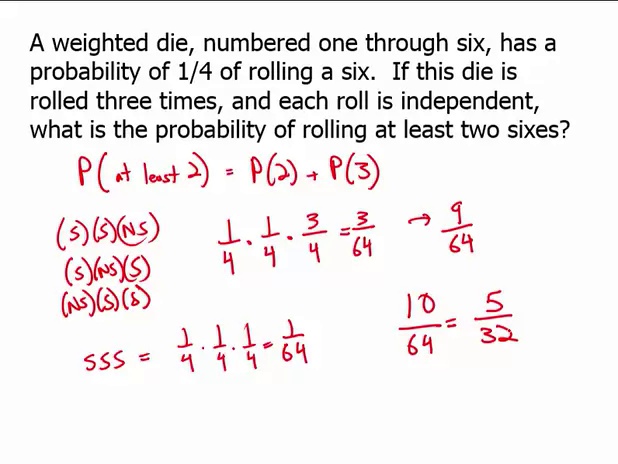 A weighted die, numbered one through six, has a
probability of 1/4 of rolling a six.  If this die is
rolled three times, and each roll is independent,
what is the probability of rolling at least two sixes?
P(at least 2) = P(2) + P(3)
(S)(S)(NS)
(S)(NS)(S)
(NS)(S)(S)
1/4 · 1/4 · 3/4 = 3/64 → 9/64
SSS = 1/4 · 1/4 · 1/4 = 1/64
10/64 = 5/32